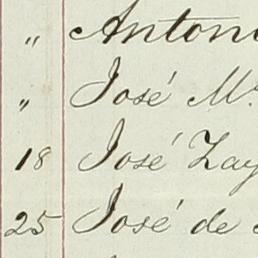 " Antoni
" José M.
18 José Zay
25 José de